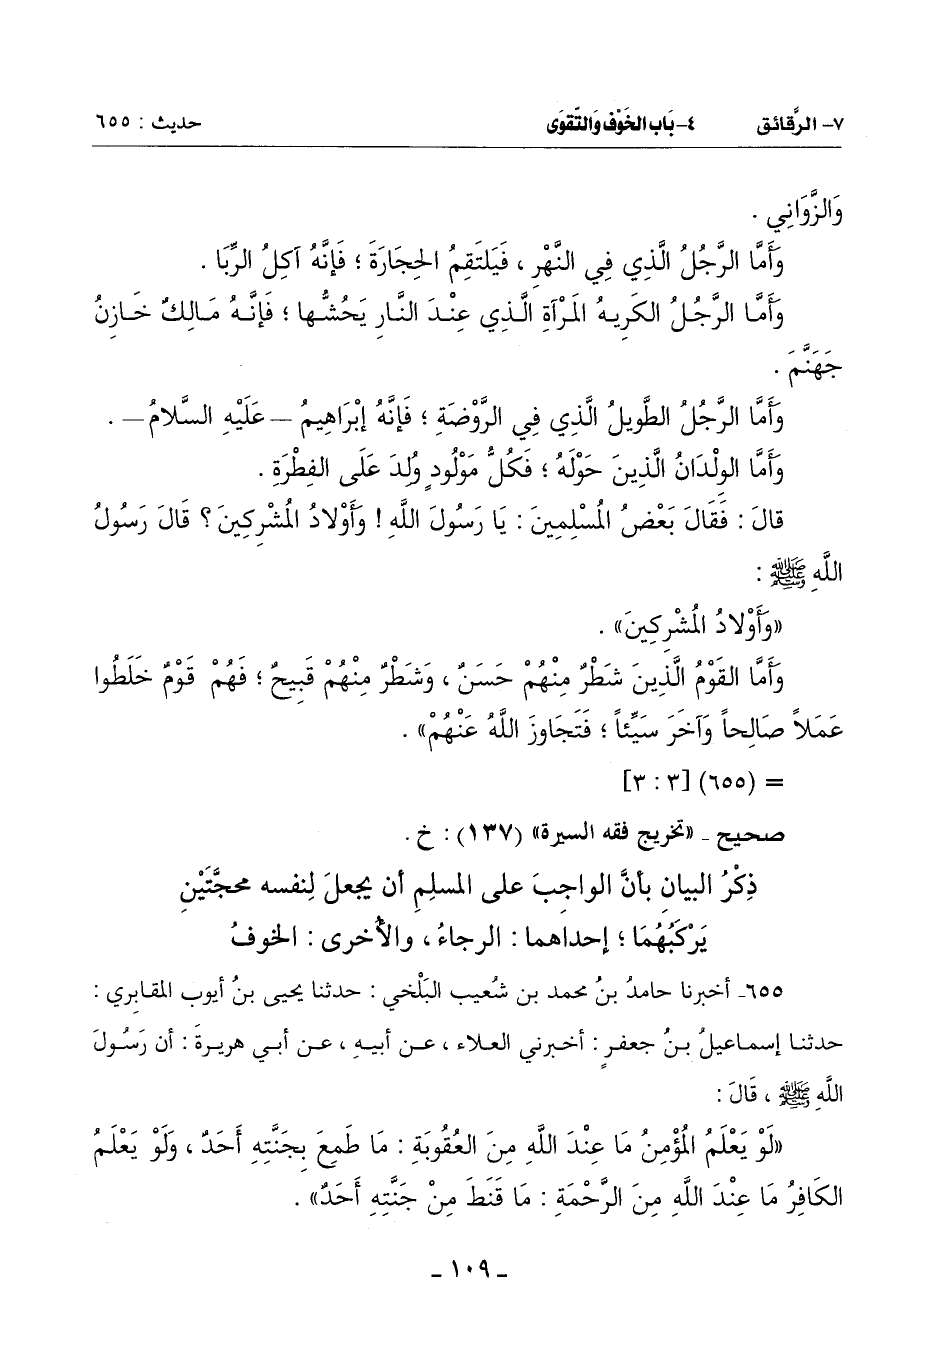 ٧- الرَّقائق ٤- بَاب الخَوْف وَالتَّقوَى حديث : ٦٥٥
وَالزَّوَانِي .
وَأَمَّا الرَّجُلُ الَّذِي فِي النَّهْرِ ، فَيَلتَقِمُ الحِجَارَةَ ؛ فَإِنَّهُ آكِلُ الرِّبَا .
وَأَمَّا الرَّجُلُ الكَرِيهُ المَرْآةِ الَّذِي عِنْدَ النَّارِ يَحُشُّها ؛ فَإِنَّهُ مَالِكٌ خَازِنُ
جَهَنَّمَ .
وَأَمَّا الرَّجُلُ الطَّوِيلُ الَّذِي فِي الرَّوْضَةِ ؛ فَإِنَّهُ إِبْرَاهِيمُ – عَلَيْهِ السَّلامُ – .
وَأَمَّا الوِلْدَانُ الَّذِينَ حَوْلَهُ ؛ فَكُلُّ مَوْلُودٍ وُلِدَ عَلَى الفِطْرَةِ .
قالَ : فَقَالَ بَعْضُ المُسْلِمِينَ : يَا رَسُولَ اللَّهِ ! وَأَوْلادُ المُشْرِكِينَ ؟ قَالَ رَسُولُ
اللَّهِ ﷺ :
«وَأَوْلادُ المُشْرِكِينَ» .
وَأَمَّا القَوْمُ الَّذِينَ شَطْرٌ مِنْهُمْ حَسَنٌ ، وَشَطْرٌ مِنْهُمْ قَبِيحٌ ؛ فَهُمْ قَوْمٌ خَلَطُوا
عَمَلاً صَالِحاً وَآخَرَ سَيِّئاً ؛ فَتَجَاوزَ اللَّهُ عَنْهُمْ» .
= (٦٥٥) [٣ : ٣]
صحيح - «تخريج فقه السيرة» (١٣٧) : خ .
ذِكْرُ البيان بأنَّ الواجبَ على المسلِمِ أن يجعلَ لِنفسه محجَّتَيْنِ
يَرْكَبُهُمَا ؛ إحداهما : الرجاءُ ، والأُخرى : الخوفُ
٦٥٥- أخبرنا حامدُ بنُ محمد بن شُعيب البَلْخي : حدثنا يحيى بنُ أيوب المقابري :
حدثنا إسماعيلُ بنُ جعفرٍ : أخبرني العلاء ، عن أبيه ، عن أبي هريرةَ : أن رَسُولَ
اللَّهِ ﷺ ، قَالَ :
«لَوْ يَعْلَمُ المُؤْمِنُ مَا عِنْدَ اللَّهِ مِنَ العُقُوبَةِ : مَا طَمِعَ بِجَنَّتِهِ أَحَدٌ ، وَلَوْ يَعْلَمُ
الكَافِرُ مَا عِنْدَ اللَّهِ مِنَ الرَّحْمَةِ : مَا قَنَطَ مِنْ جَنَّتِهِ أَحَدٌ» .
- ١٠٩ -